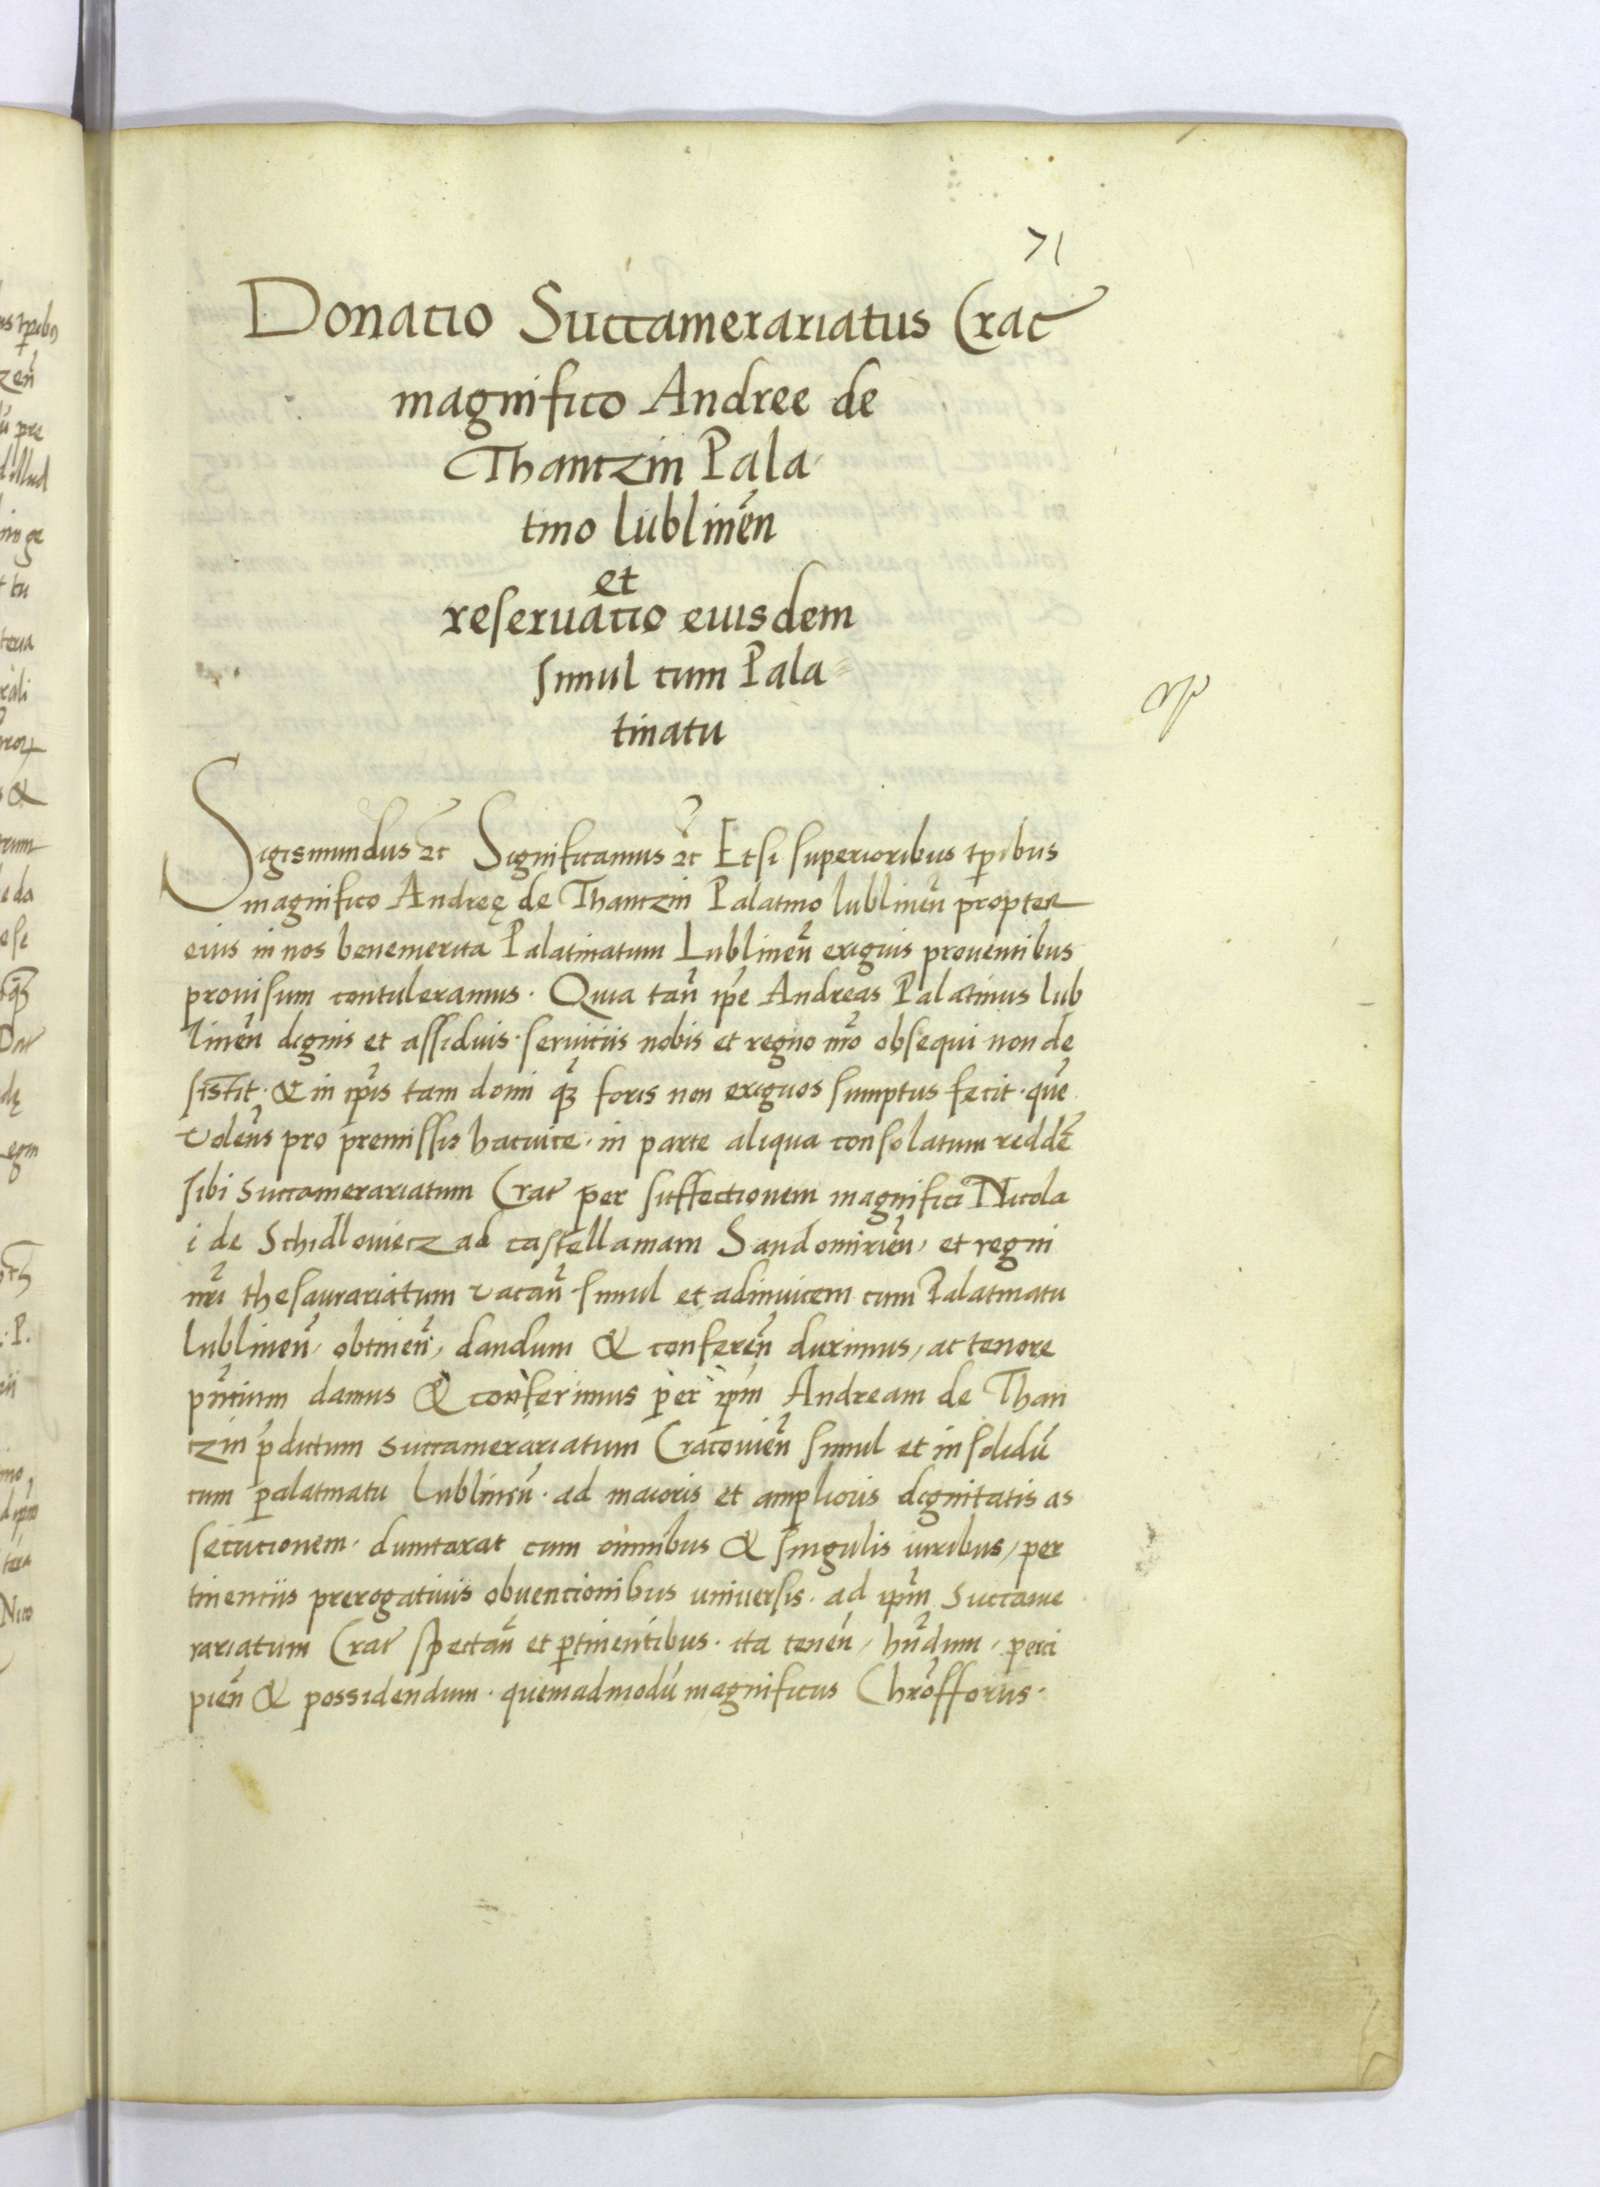 71
Donatio Succamerariatus Crac
magnifico Andree de
Thantzin Pala
tino lublinen̄
et
reseruatio euisdem
simul cum Pala=
tinatu
Sigismundus ꝛc Significamus ꝛc Etsi superioribus tꝑibus
magnifico Andreę de Thantzin Palatino lublinen̄ propter
eius in nos benemerita Palatinatum Lublinen̄ exiguis prouentibus
prouisum contuleramus. Quia tan̄ ip̄e Andreas Palatinus lub
linen̄ dignis et assiduis seruiciis nobis et regno nr̄o obsequi non de
sistit. & in ip̄is tam domi qꝫ foris non exiguos sumptus fecit. que
volen̄s pro premissis hacuice. in parte aliqua consolatum redde͞
sibi Succamerariatum Crac per suffectionem magnifici Nicola
i de Schidlowiecz ad castellaniam Sandomirien̄, et regni
nr̄i thesaurariatum vacan̄ simul et adinuicem cum Palatinatu
lublinen̄, obtinen̄, dandum & conferen̄ duximus, ac tenore
pn̄cium damus & conferimus per ip̄m Andream de Than
tzin p̄dictum Succamerariatum Cracouien̄ simul et insolidū
cum palatinatu lublinen̄. ad maioris et amplioris dignitatis as
secucionem. dumtaxat cum omnibus & singulis iuribus, per
tinenciis prerogatiuis obuencionibus uniuersis. ad ip̄m Succame
rariatum Crac spectan̄ et ꝑtinentibus. ita tenen̄, hn̄dum, perci
pien̄ & possidendum. quemadmodū magnificus Chrōfforus.